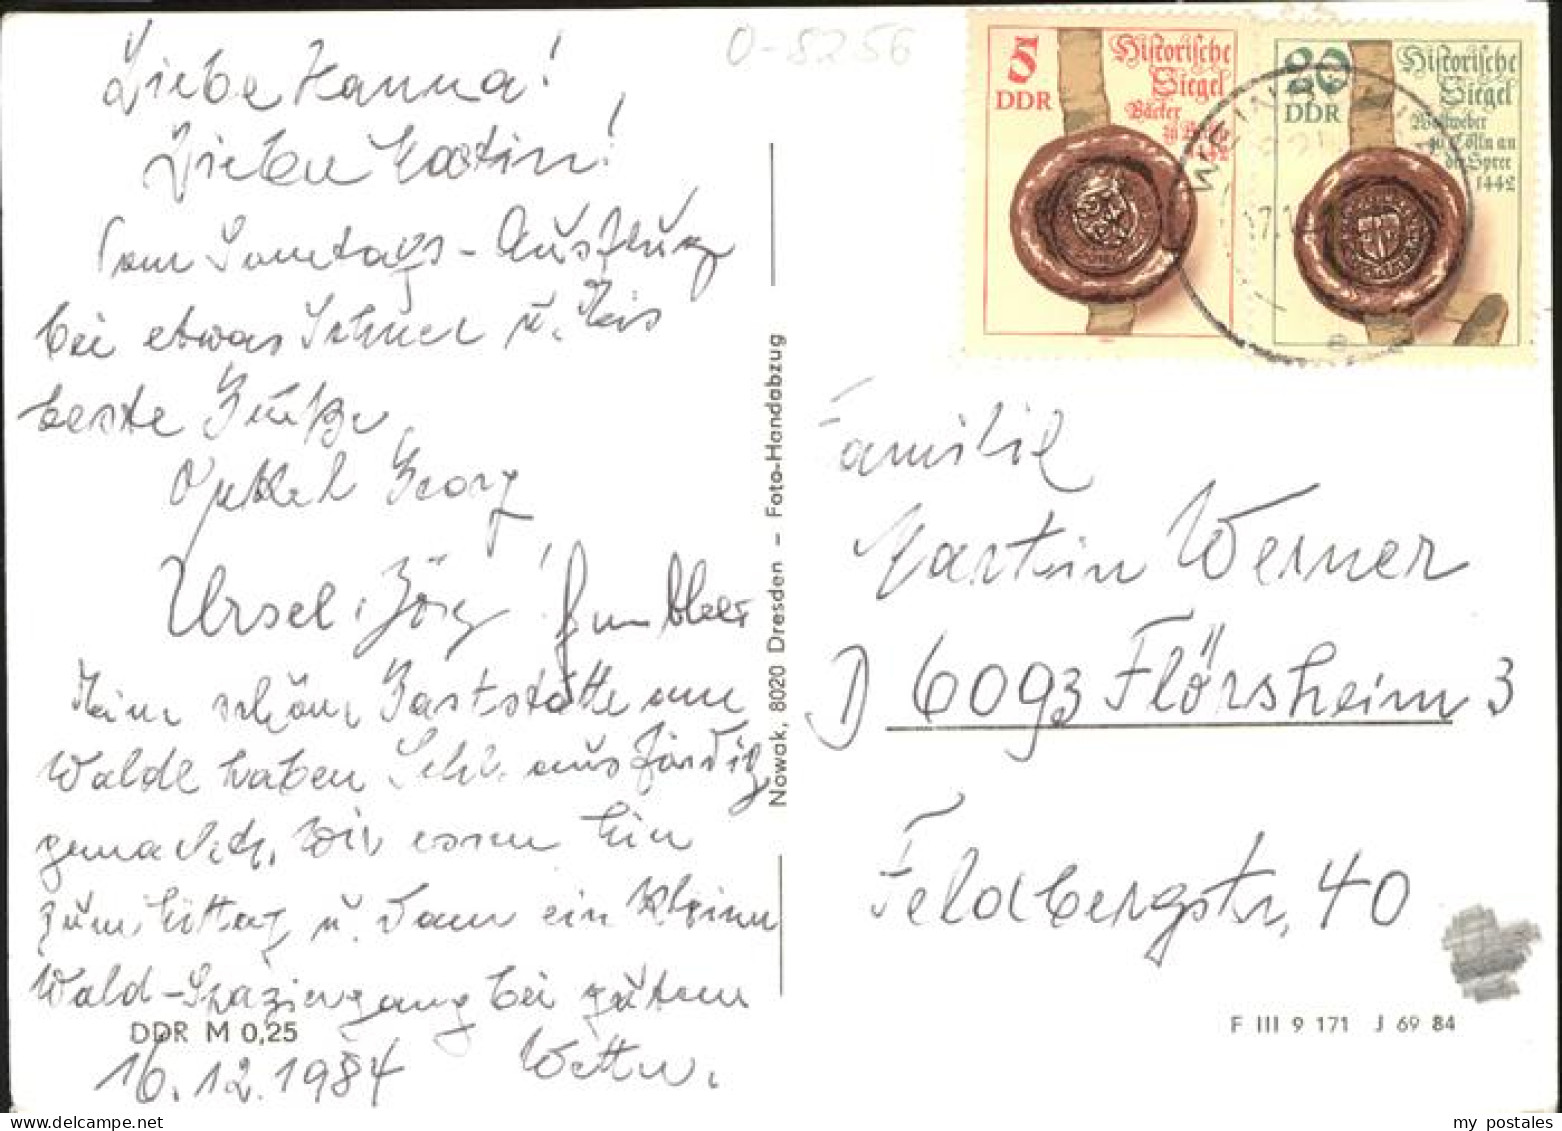 O-8256
Liebe Hanna!
Lieben Martin!
Vom Sonntags-Ausflug
bei etwas Schnee u. Eis
beste Grüße
Onkel Georg
Ursel, Jörg
Eine schöne Gaststätte am
Walde haben ausfindig
gemacht, wir essen hier
zum Mittag u. dann ein kleinen
Wald-Spaziergang bei gutem
Wetter.
16.12.1984
DDR M 0,25
Nowak, 8020 Dresden – Foto-Handabzug
5
DDR
Historische
Siegel
Bäcker
zu Berlin
1442
20
DDR
Historische
Siegel
Wollweber
zu Cölln an
der Spree
1442
Familie
Martin Werner
D 6093 Flörsheim 3
Feldbergstr. 40
F III 9 171 J 69 84
my postales